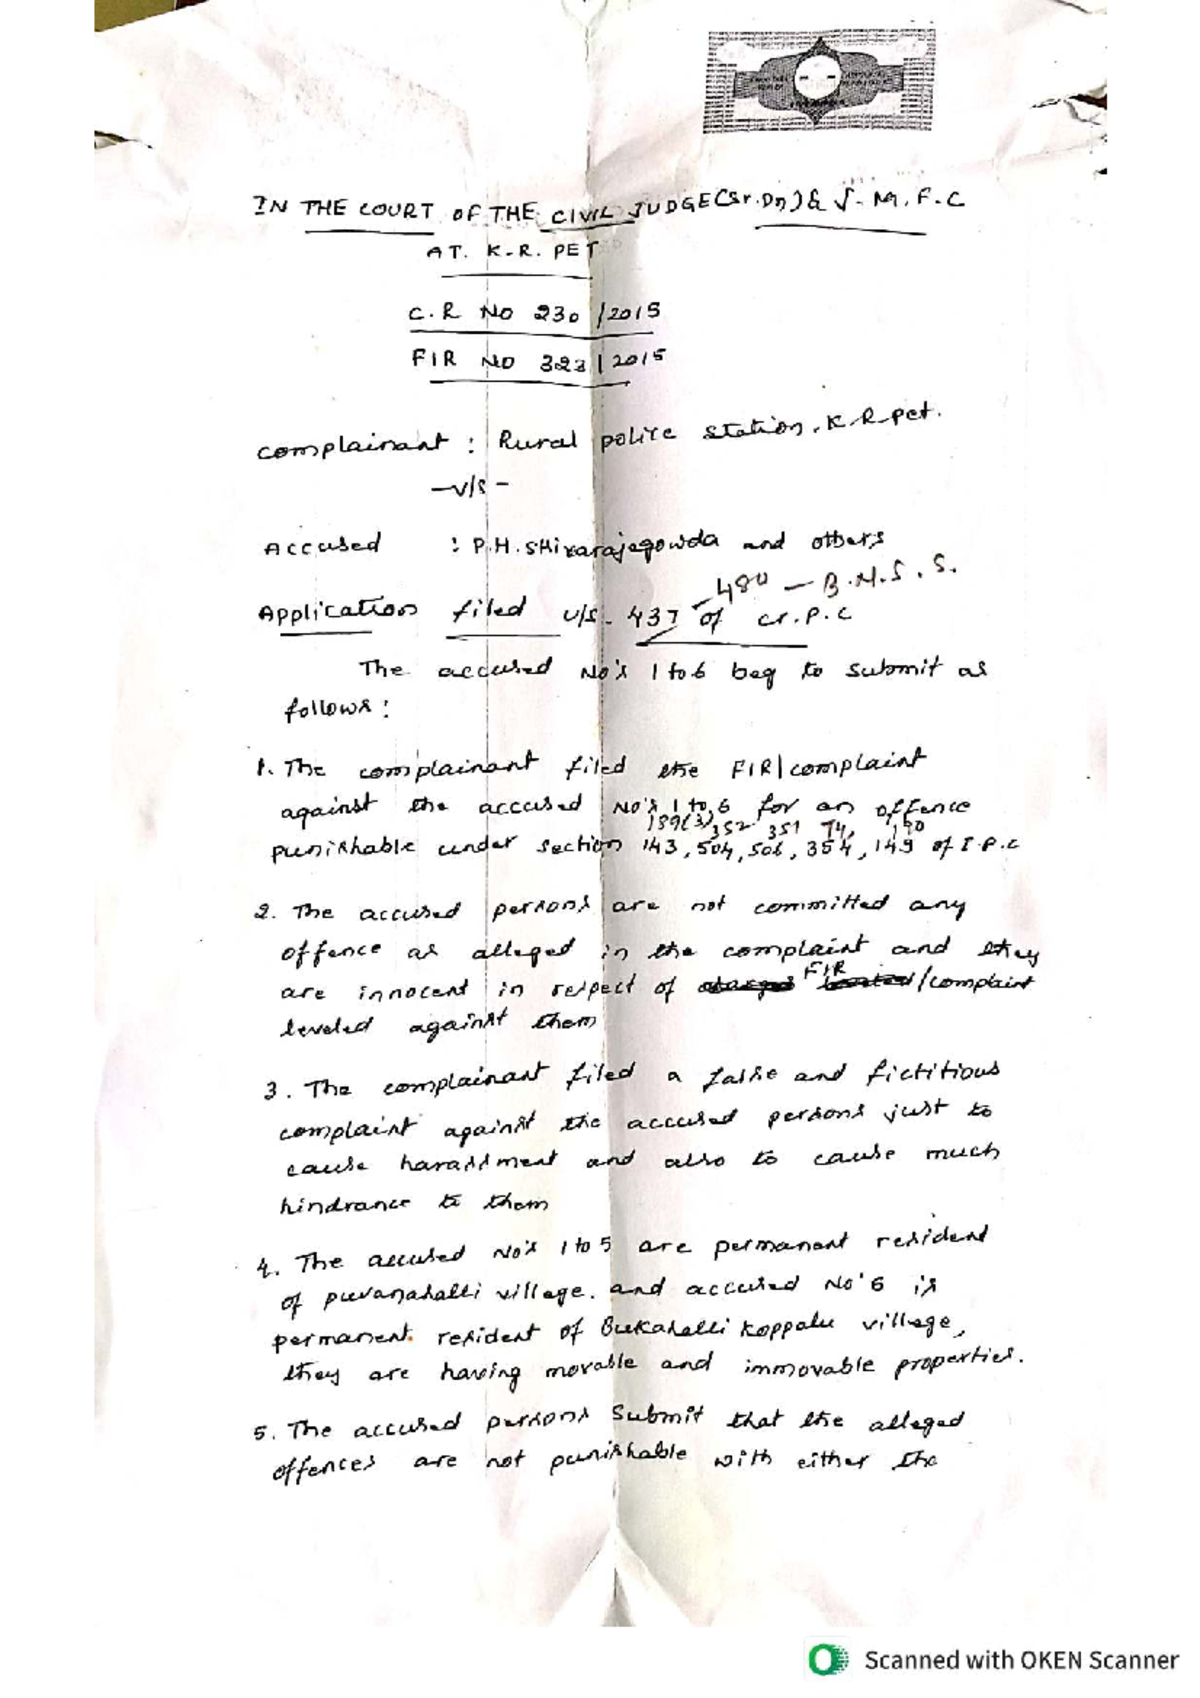 IN THE COURT OF THE CIVIL JUDGE (Sr.Dn) & J.M.F.C
AT. K.R. PET
C.R NO 230/2015
FIR NO 323/2015
Complainant : Rural police station, K.R.pet.
-v/s-
Accused : P.H. SHivarajegowda and others
480 - B.N.S.S.
Application filed u/s. 437 of cr.P.C
The accused No's 1 to 6 beg to submit as
follows:
1. The complainant filed the FIR|complaint
against the accused No's 1 to 6 for an offence
189(3), 352 351 74, 190
punishable under section 143, 504, 506, 354, 149 of I.P.C
2. The accused persons are not committed any
offence as alleged in the complaint and they
FIR
are innocent in respect of /complaint
leveled against them
3. The complainant filed a false and fictitious
complaint against the accused persons just to
cause harassment and also to cause much
hindrance to them
4. The accused No's 1 to 5 are permanent resident
of puvanahalli village. and accused No'6 is
permanent. resident of Bukahalli Koppalu village,
they are having movable and immovable properties.
5. The accused persons Submit that the alleged
offences are not punishable with either the
Scanned with OKEN Scanner